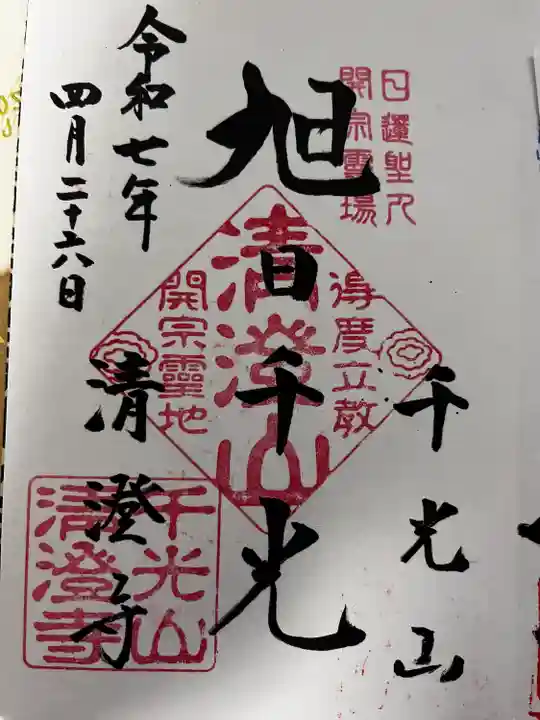 日蓮聖人
開宗霊場
千光山
旭日千光
清澄寺
令和七年
四月二十六日
清澄山
得度立教
開宗靈地
千光山
清澄寺